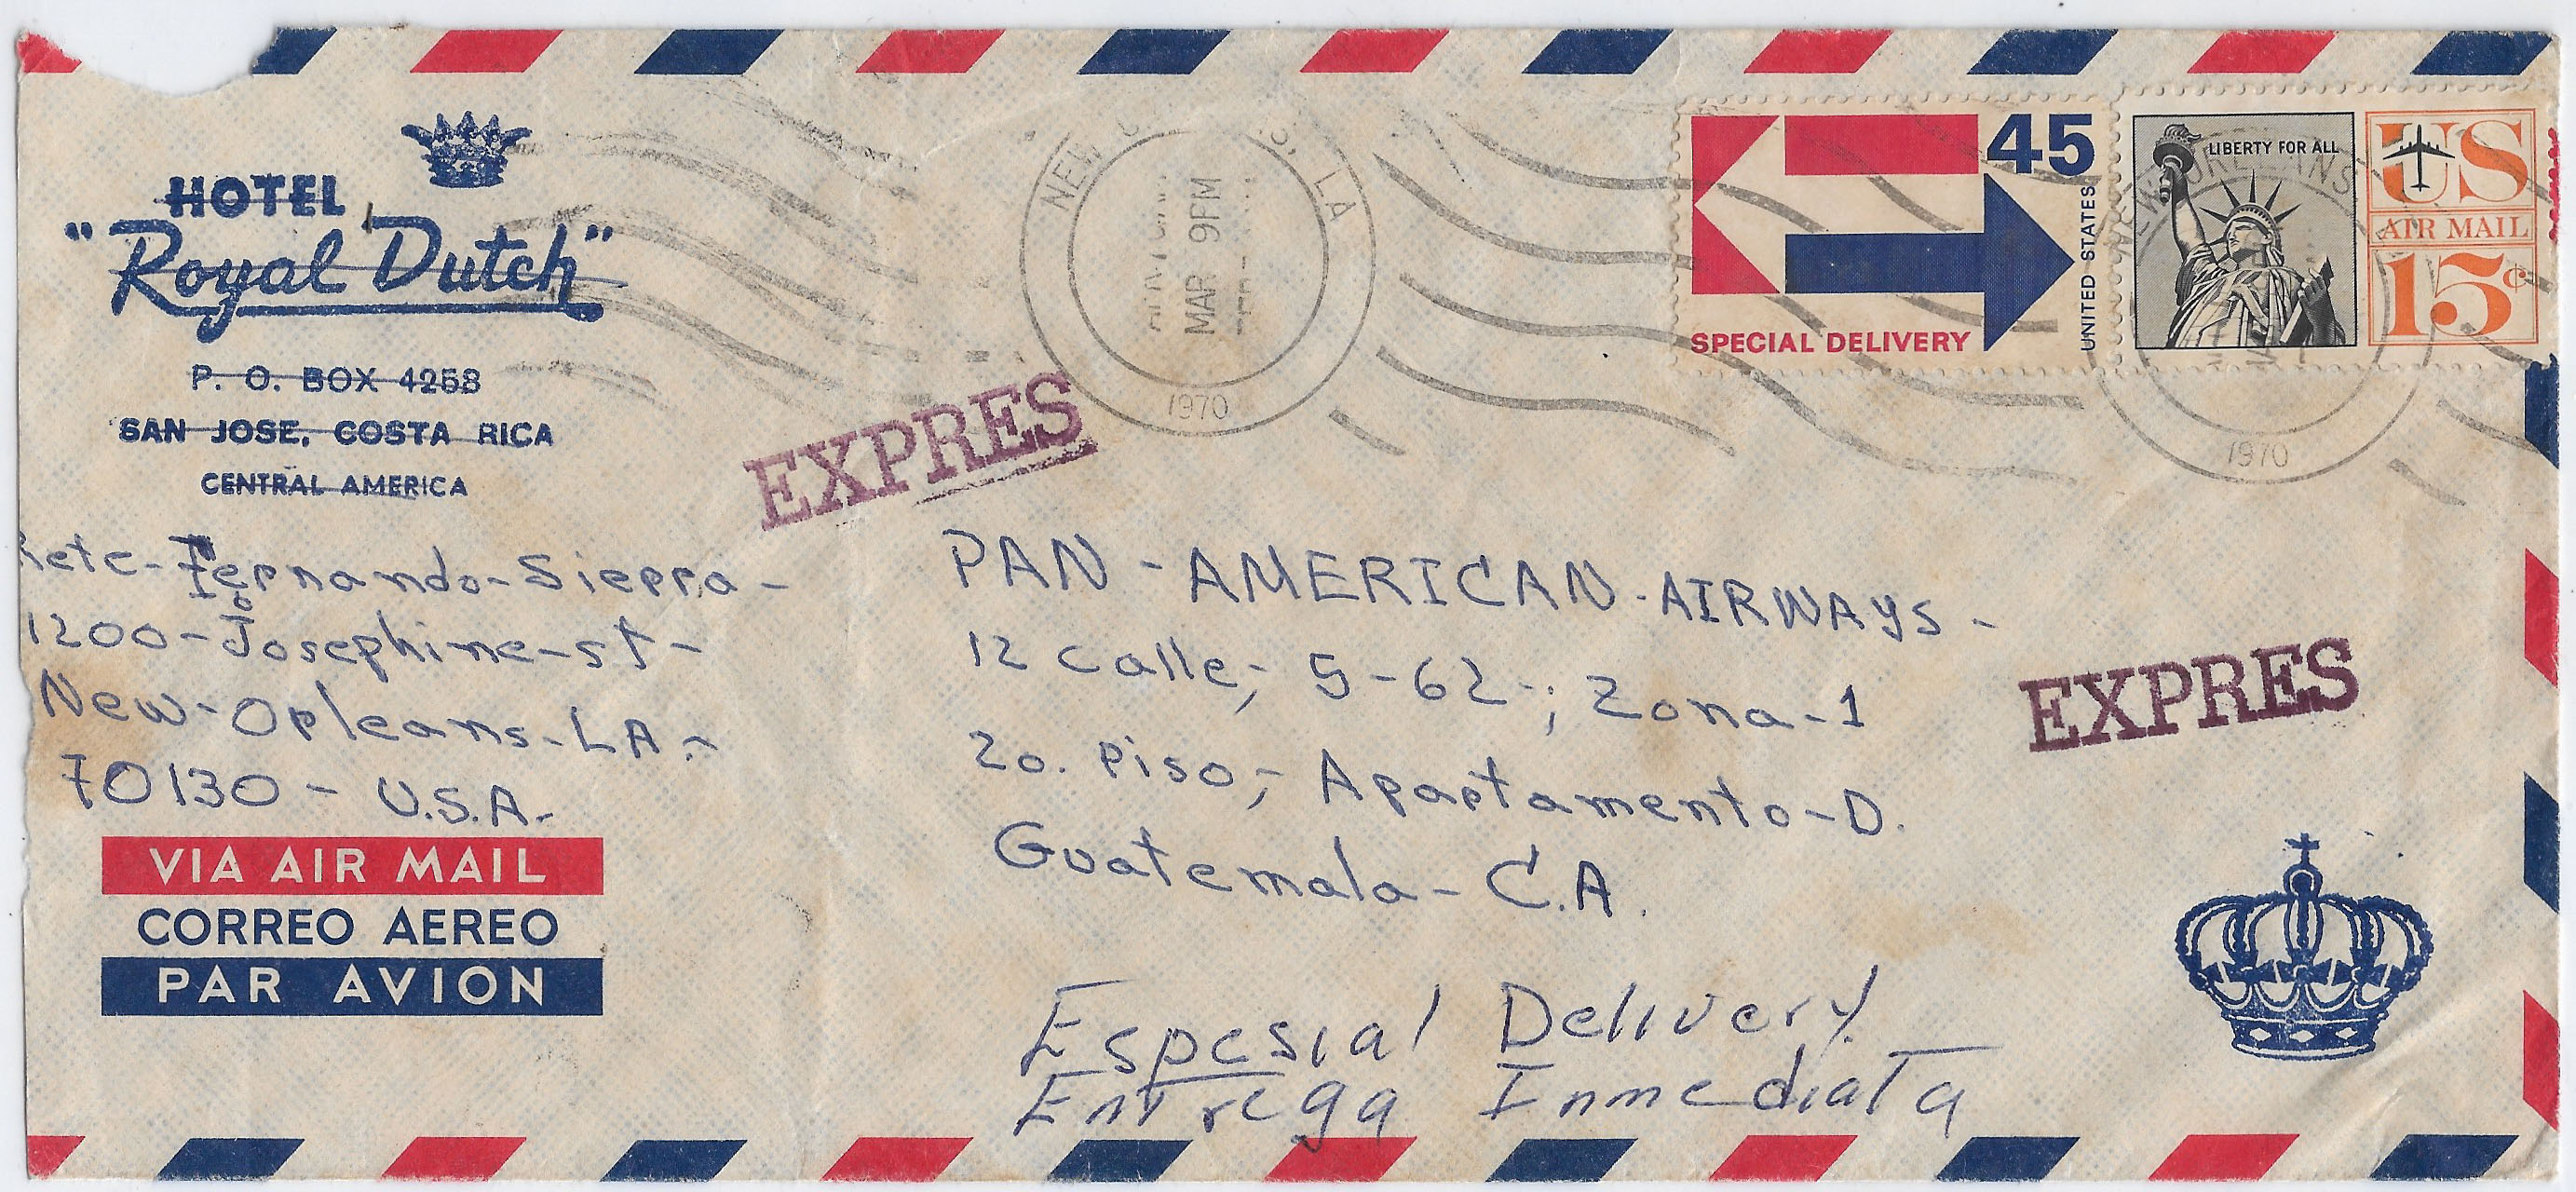 HOTEL
"Royal Dutch"
P. O. BOX 4258
SAN JOSE, COSTA RICA
CENTRAL AMERICA
NEW LA
MAR 9PM
1970
SPECIAL DELIVERY
45
UNITED STATES
LIBERTY FOR ALL
US
AIR MAIL
15¢
NEW ORLEANS
1970
EXPRES
Fernando-Sierra-
1200-Josephine-st-
New-Orleans-LA-
70130- U.S.A-
PAN-AMERICAN-AIRWAYS-
12 calle,- 5-62-; Zona-1
2o. Piso,- Apartamento-D.
Guatemala- C.A.
EXPRES
VIA AIR MAIL
CORREO AEREO
PAR AVION
Espesial Delivery.
Entrega Inmediata